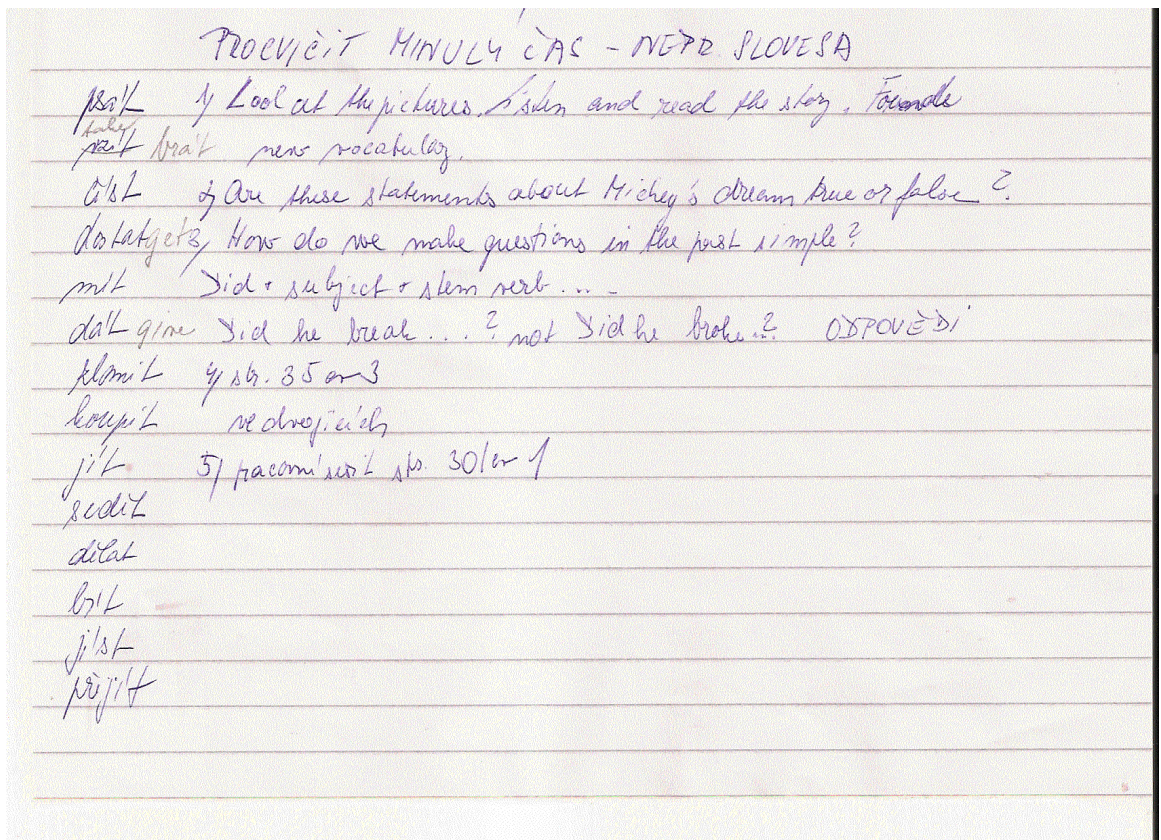 PROCVIČIT MINULÝ ČAS - NEPR. SLOVESA
psát 1) Look at the pictures. Listen and read the story.
take
brát new vocabulary.
číst 2) Are these statements about Mickey's dream true or false?
dostat get 3) How do we make questions in the past simple?
mít Did + subject + stem verb ...
dát give Did he break...? not Did he broke..? ODPOVĚDI
zlomit 4) str. 35 cv 3
koupit ve dvojicích
jít 5) pracovní sešit str. 30/cv 1
sedět
dělat
být
jíst
přijít